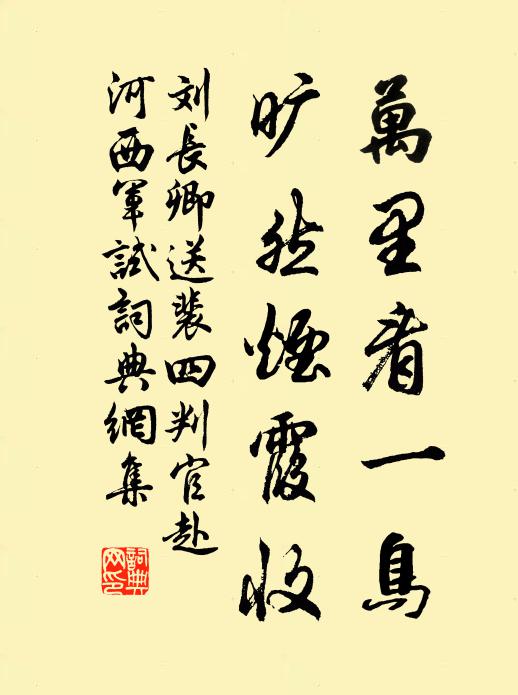 萬里看一鳥
旷然煙霞收
刘長卿送裴四判官赴
河西軍試詞典網集
詞典网印